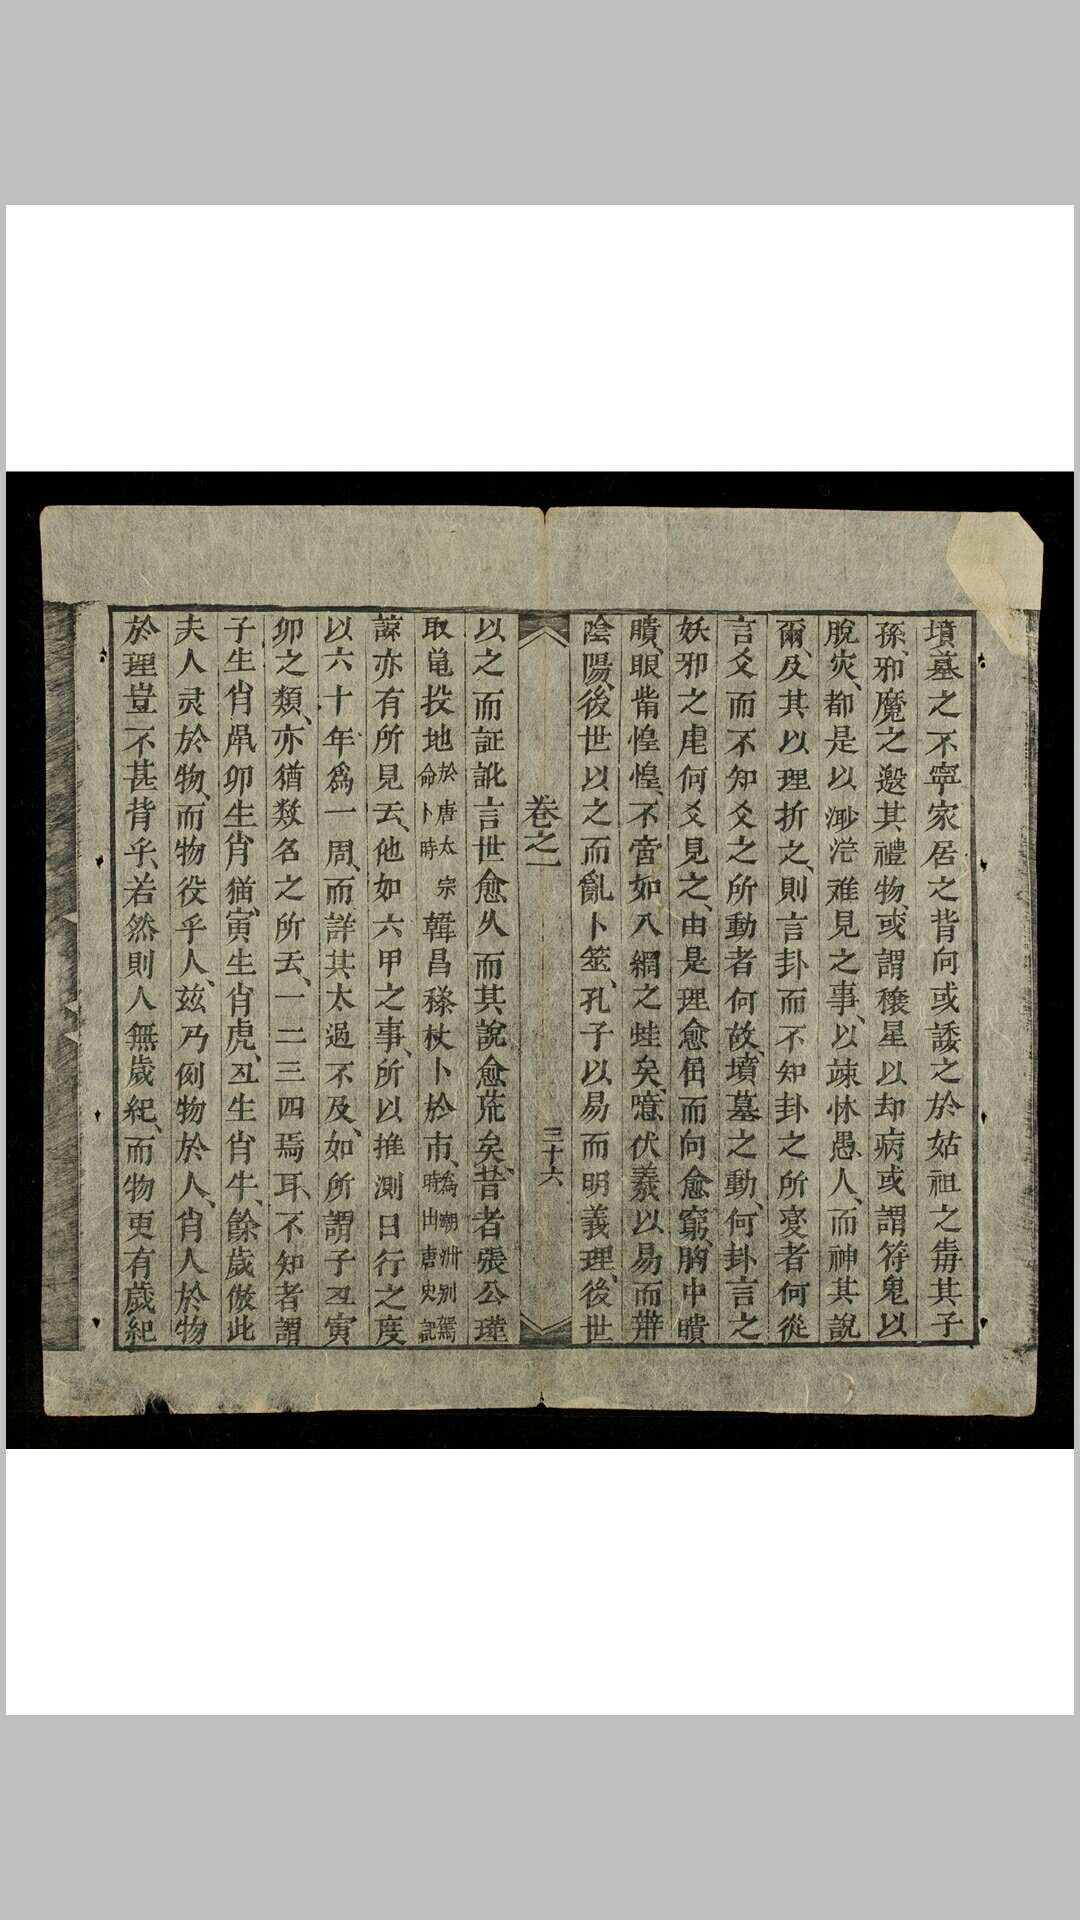 墳墓之不寧家居之背向或諉之於姑祖之毒其子
孫、邪魔之邀其禮物、或謂禳星以却病或謂符鬼以
脫灾、都是以渺茫难見之事、以竦怵愚人、而神其說
爾、及其以理折之、則言卦而不知卦之所変者何從
言爻而不知爻之所動者何故、墳墓之動、何卦言之
妖邪之虐何爻見之、由是理愈屈而向愈窮、胸中瞶
瞶、眼眥惶惶、不啻如入網之蛙矣、噫、伏羲以易而辨
陰陽、後世以之而亂卜筮、孔子以易而明義理、後世
卷之一 三十六
以之而証訛言世愈久而其說愈荒矣、昔者張公瑾
取龟投地於唐太宗命卜時韓昌𥠖杖卜於市、為潮洲別駕時出唐史記
諒亦有所見云、他如六甲之事、所以推測日行之度
以六十年爲一周、而詳其太過不及、如所謂子丑寅
卯之類、亦猶数名之所云、一二三四焉耳、不知者謂
子生肖鼠卯生肖猫、寅生肖虎、丑生肖牛、餘歲倣此
夫人灵於物、而物役乎人、玆乃例物於人、肖人於物
於理豈不甚背乎、若然則人無歲紀、而物更有歲紀